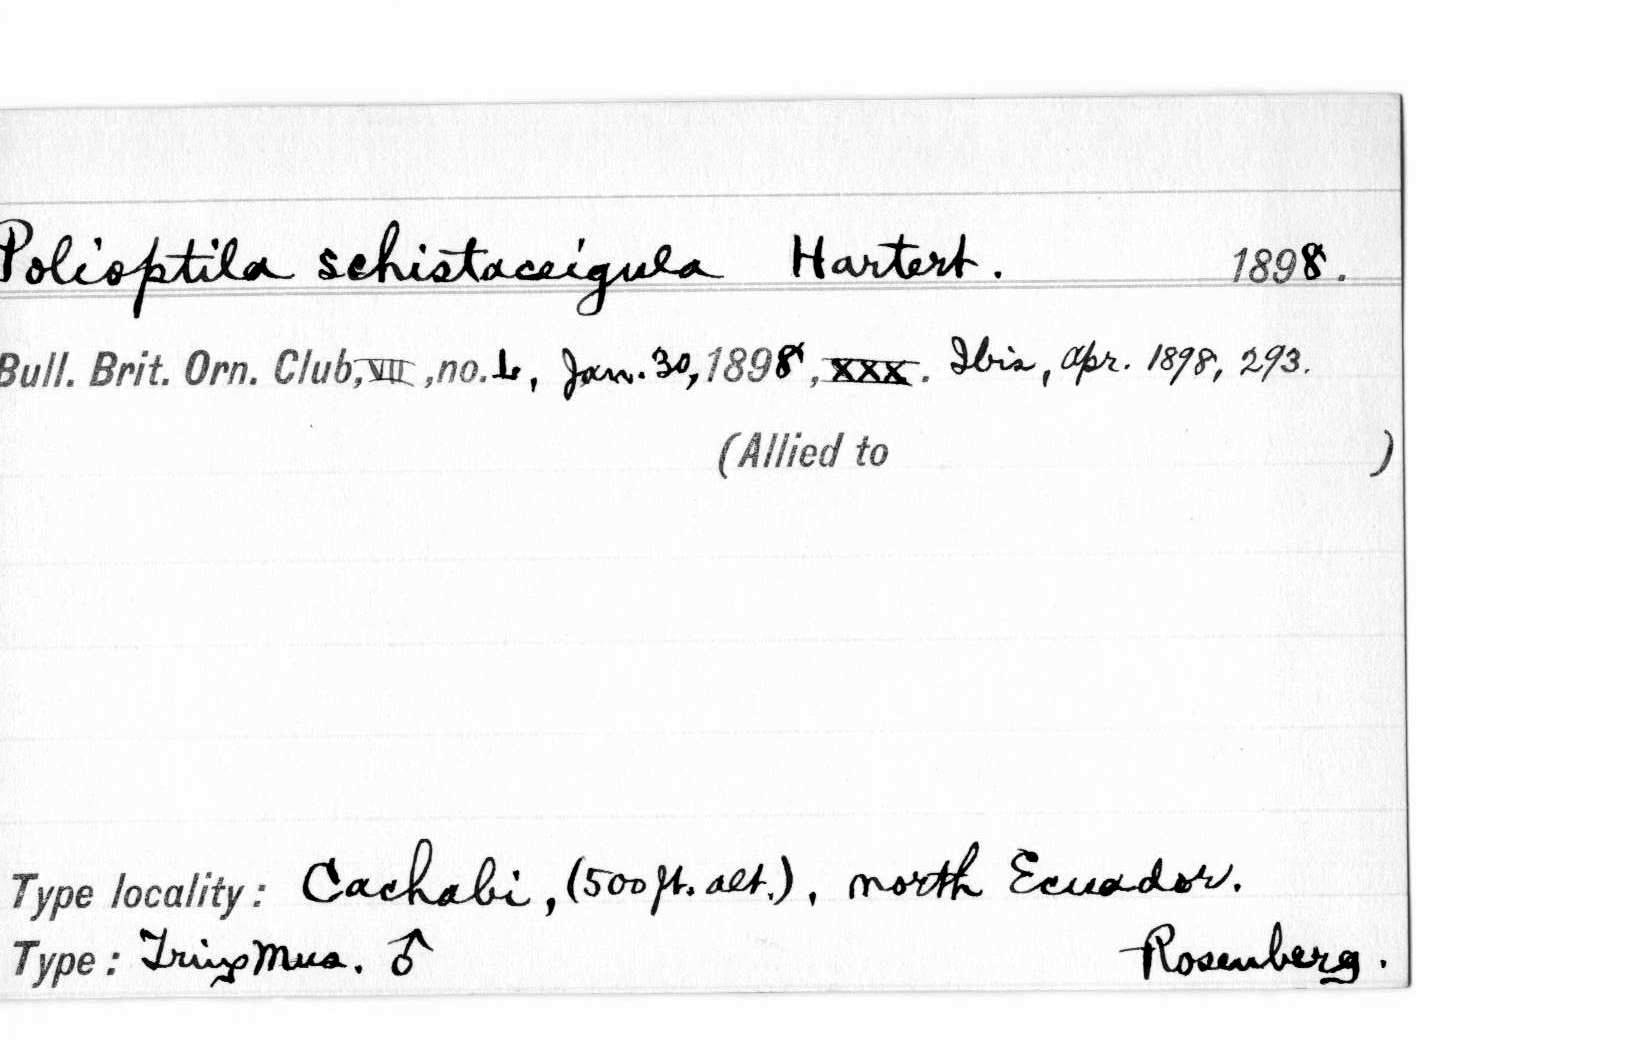 Polioptila schistaceigula Hartert. 1898.
Bull. Brit. Orn. Club, VII, no. L, Jan. 30, 1898, XXX. Ibis, Apr. 1898, 293.
(Allied to )
Type locality: Cachabi, (500 ft. alt.), north Ecuador.
Type: Tring Mus. ♂ Rosenberg.